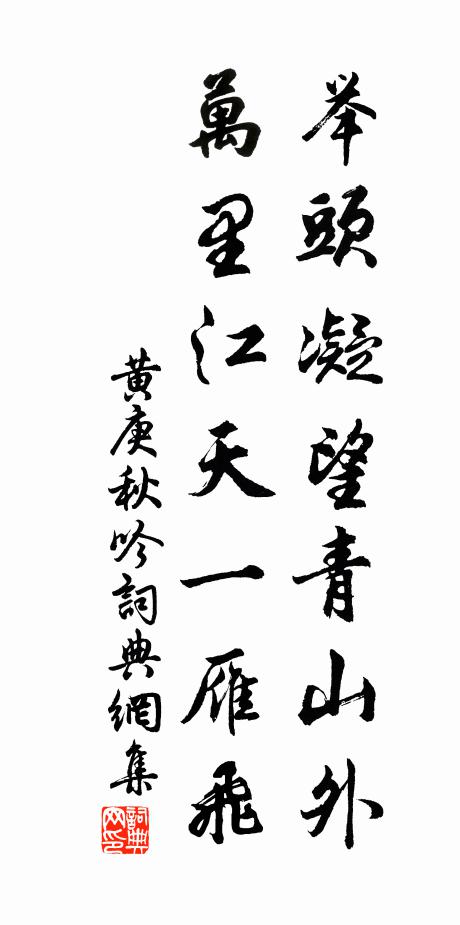 举頭凝望青山外
萬里江天一雁飛
黄庚秋吟詞典網集
詞典网印